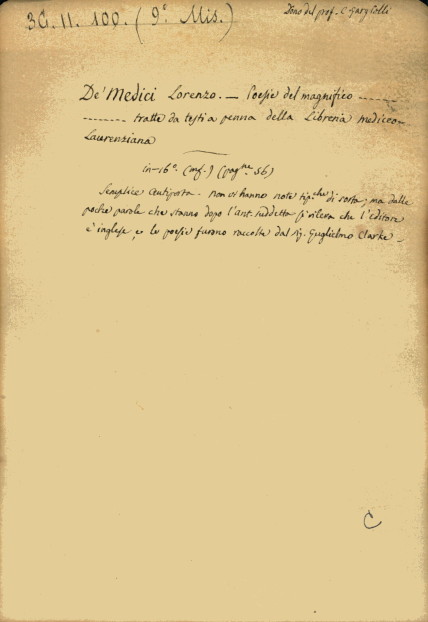 3G. 11. 100. (9.° Mis.)
Dono del prof. C. Gargiolli
De' Medici Lorenzo. — Poesie del magnifico -----
-------- tratte da testi a penna della Libreria mediceo-
Laurenziana
in-16°. (mf.) (pagne 56)
Semplice antiporta - non vi hanno note tip.che di sorta; ma dalle
poche parole che stanno dopo l'ant. suddetta si rileva che l'editore
è inglese, e le poesie furono raccolte dal Sig. Guglielmo Clarke -
C